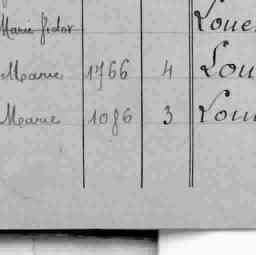 Marie fidor Loue
Marie 1766 4 Lou
Marie 1086 3 Lou